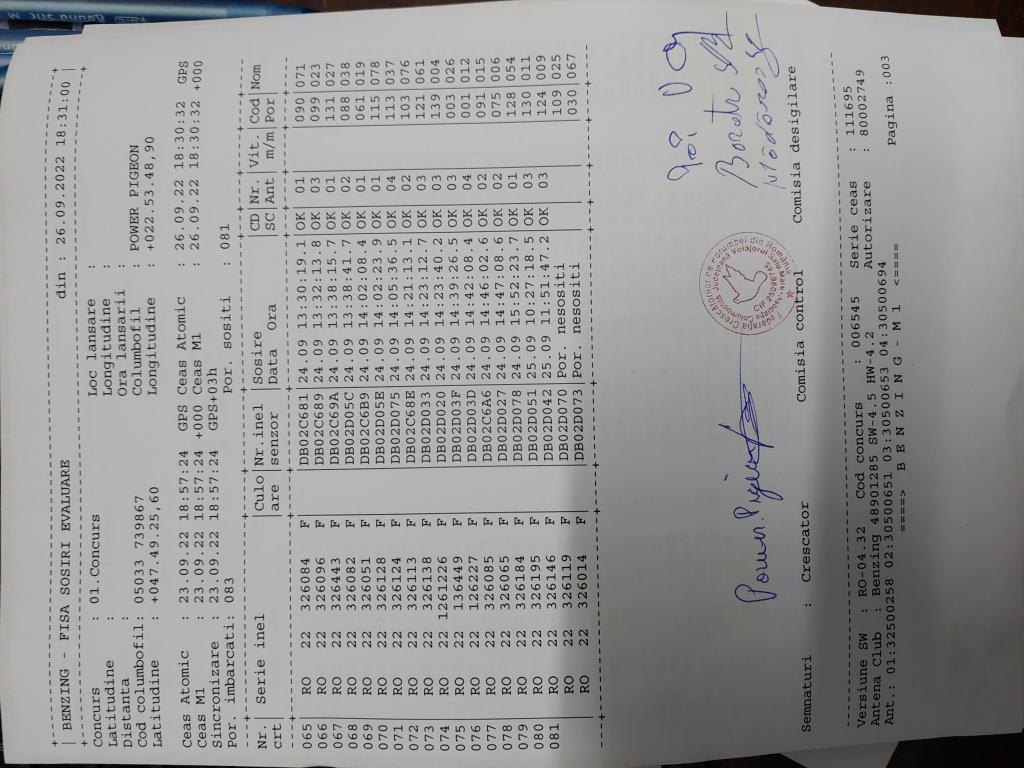 | BENZING - FISA SOSIRI EVALUARE din : 26.09.2022 18:31:00 |
Concurs : 01.Concurs Loc lansare :
Latitudine : Longitudine :
Distanta : Ora lansarii :
Cod columbofil: 05033 739867 Columbofil : POWER PIGEON
Latitudine : +047.49.25,60 Longitudine : +022.53.48,90
Ceas Atomic : 23.09.22 18:57:24 GPS Ceas Atomic : 26.09.22 18:30:32 GPS
Ceas M1 : 23.09.22 18:57:24 +000 Ceas M1 : 26.09.22 18:30:32 +000
Sincronizare : 23.09.22 18:57:24 GPS+03h
Por. imbarcati: 083 Por. sositi : 081
Nr. | Serie inel | Culo | Nr.inel | Sosire | CD | Nr. | Vit. | Cod | Nom
crt | | are | senzor | Data Ora | SC | Ant | m/m | Por |
065 | RO 22 326084 F | | DB02C681 | 24.09 13:30:19.1 | OK | 01 | | 090 | 071
066 | RO 22 326096 F | | DB02C689 | 24.09 13:32:13.8 | OK | 03 | | 099 | 023
067 | RO 22 326443 F | | DB02C69A | 24.09 13:38:15.7 | OK | 01 | | 131 | 027
068 | RO 22 326082 F | | DB02D05C | 24.09 13:38:41.7 | OK | 02 | | 088 | 038
069 | RO 22 326051 F | | DB02C6B9 | 24.09 14:02:08.4 | OK | 01 | | 061 | 019
070 | RO 22 326128 F | | DB02D05E | 24.09 14:02:23.9 | OK | 01 | | 115 | 078
071 | RO 22 326124 F | | DB02D075 | 24.09 14:05:36.5 | OK | 04 | | 113 | 037
072 | RO 22 326113 F | | DB02C68E | 24.09 14:21:13.1 | OK | 02 | | 103 | 076
073 | RO 22 326138 F | | DB02D033 | 24.09 14:23:12.7 | OK | 03 | | 121 | 061
074 | RO 22 1261226 F | | DB02D020 | 24.09 14:23:40.2 | OK | 03 | | 139 | 004
075 | RO 22 136449 F | | DB02D03F | 24.09 14:39:26.5 | OK | 03 | | 003 | 026
076 | RO 22 126227 F | | DB02D03D | 24.09 14:42:08.4 | OK | 04 | | 001 | 012
077 | RO 22 326085 F | | DB02C6A6 | 24.09 14:46:02.6 | OK | 02 | | 091 | 015
078 | RO 22 326065 F | | DB02D027 | 24.09 14:47:08.6 | OK | 02 | | 075 | 006
079 | RO 22 326184 F | | DB02D078 | 24.09 15:52:23.7 | OK | 01 | | 128 | 054
080 | RO 22 326195 F | | DB02D051 | 25.09 10:27:18.5 | OK | 03 | | 130 | 011
081 | RO 22 326146 F | | DB02D042 | 25.09 11:51:47.2 | OK | 03 | | 124 | 009
RO 22 326119 F | | DB02D070 | Por. nesositi | | | | 109 | 025
RO 22 326014 F | | DB02D073 | Por. nesositi | | | | 030 | 067
Power Pigeon
Semnaturi : Crescator Comisia control Comisia desigilare
Versiune SW : RO-04.32 Cod concurs : 006545 Serie ceas : 111695
Antena Club : Benzing 48901285 SW-4.5 HW-4.2 Autorizare : 80002749
Ant.: 01:32500258 02:30500651 03:30500653 04:30500694
====> B E N Z I N G - M 1 <==== Pagina :003